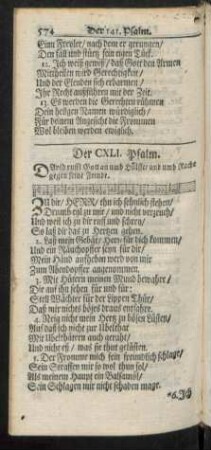 574 Der 141. Psalm.
Eim Frevler / nach dem er gerungen /
Den fäll und stürtz sein eigen Tück.
12. Ich weiß gewiß / daß Gott den Armen
Mittheilen wird Gerechtigkeit /
Und der Elenden sich erbarmen /
Ihr Recht außführen mit der Zeit.
13. Es werden die Gerechten rühmen
Dein heilgen Namen würdiglich /
Für deinem Angesicht die Frommen
Wol bleiben werden ewiglich.
Der CXLI. Psalm.
David rufft Gott an umb Hülffe und umb Rache
gegen seine Feinde.
Zu dir / HERR / ruf ich sehnlich flehen /
Drumb eyl zu mir / und nicht verzeuch /
Und weil ich zu dir ruff und schrey /
So laß dir das zu Hertzen gehen.
2. Laß mein Gebät / Herr / für dich kommen /
Und ein Rauchopfer seyn für dir /
Mein Händ aufheben werd von mir
Zum Abendopfer angenommen.
3. Mit Hütern meinen Mund bewahre /
Die auf ihn sehen für und für:
Stell Wächter für der Lippen Thür /
Daß mir nichts böses draus entfahre.
4. Neig nicht mein Hertz zu bösen Lüsten /
Auf daß sich nicht zur Ubelthat
Mit Ubelthätern auch gerath /
Und nicht eß / was sie thut gelüsten.
5. Der Fromme mich fein freundlich schlage /
Sein Straffen mir so wol thun sol /
Als meinem Haupt ein Balsamöl /
Sein Schlagen mir nicht schaden mag.
*6. Ich